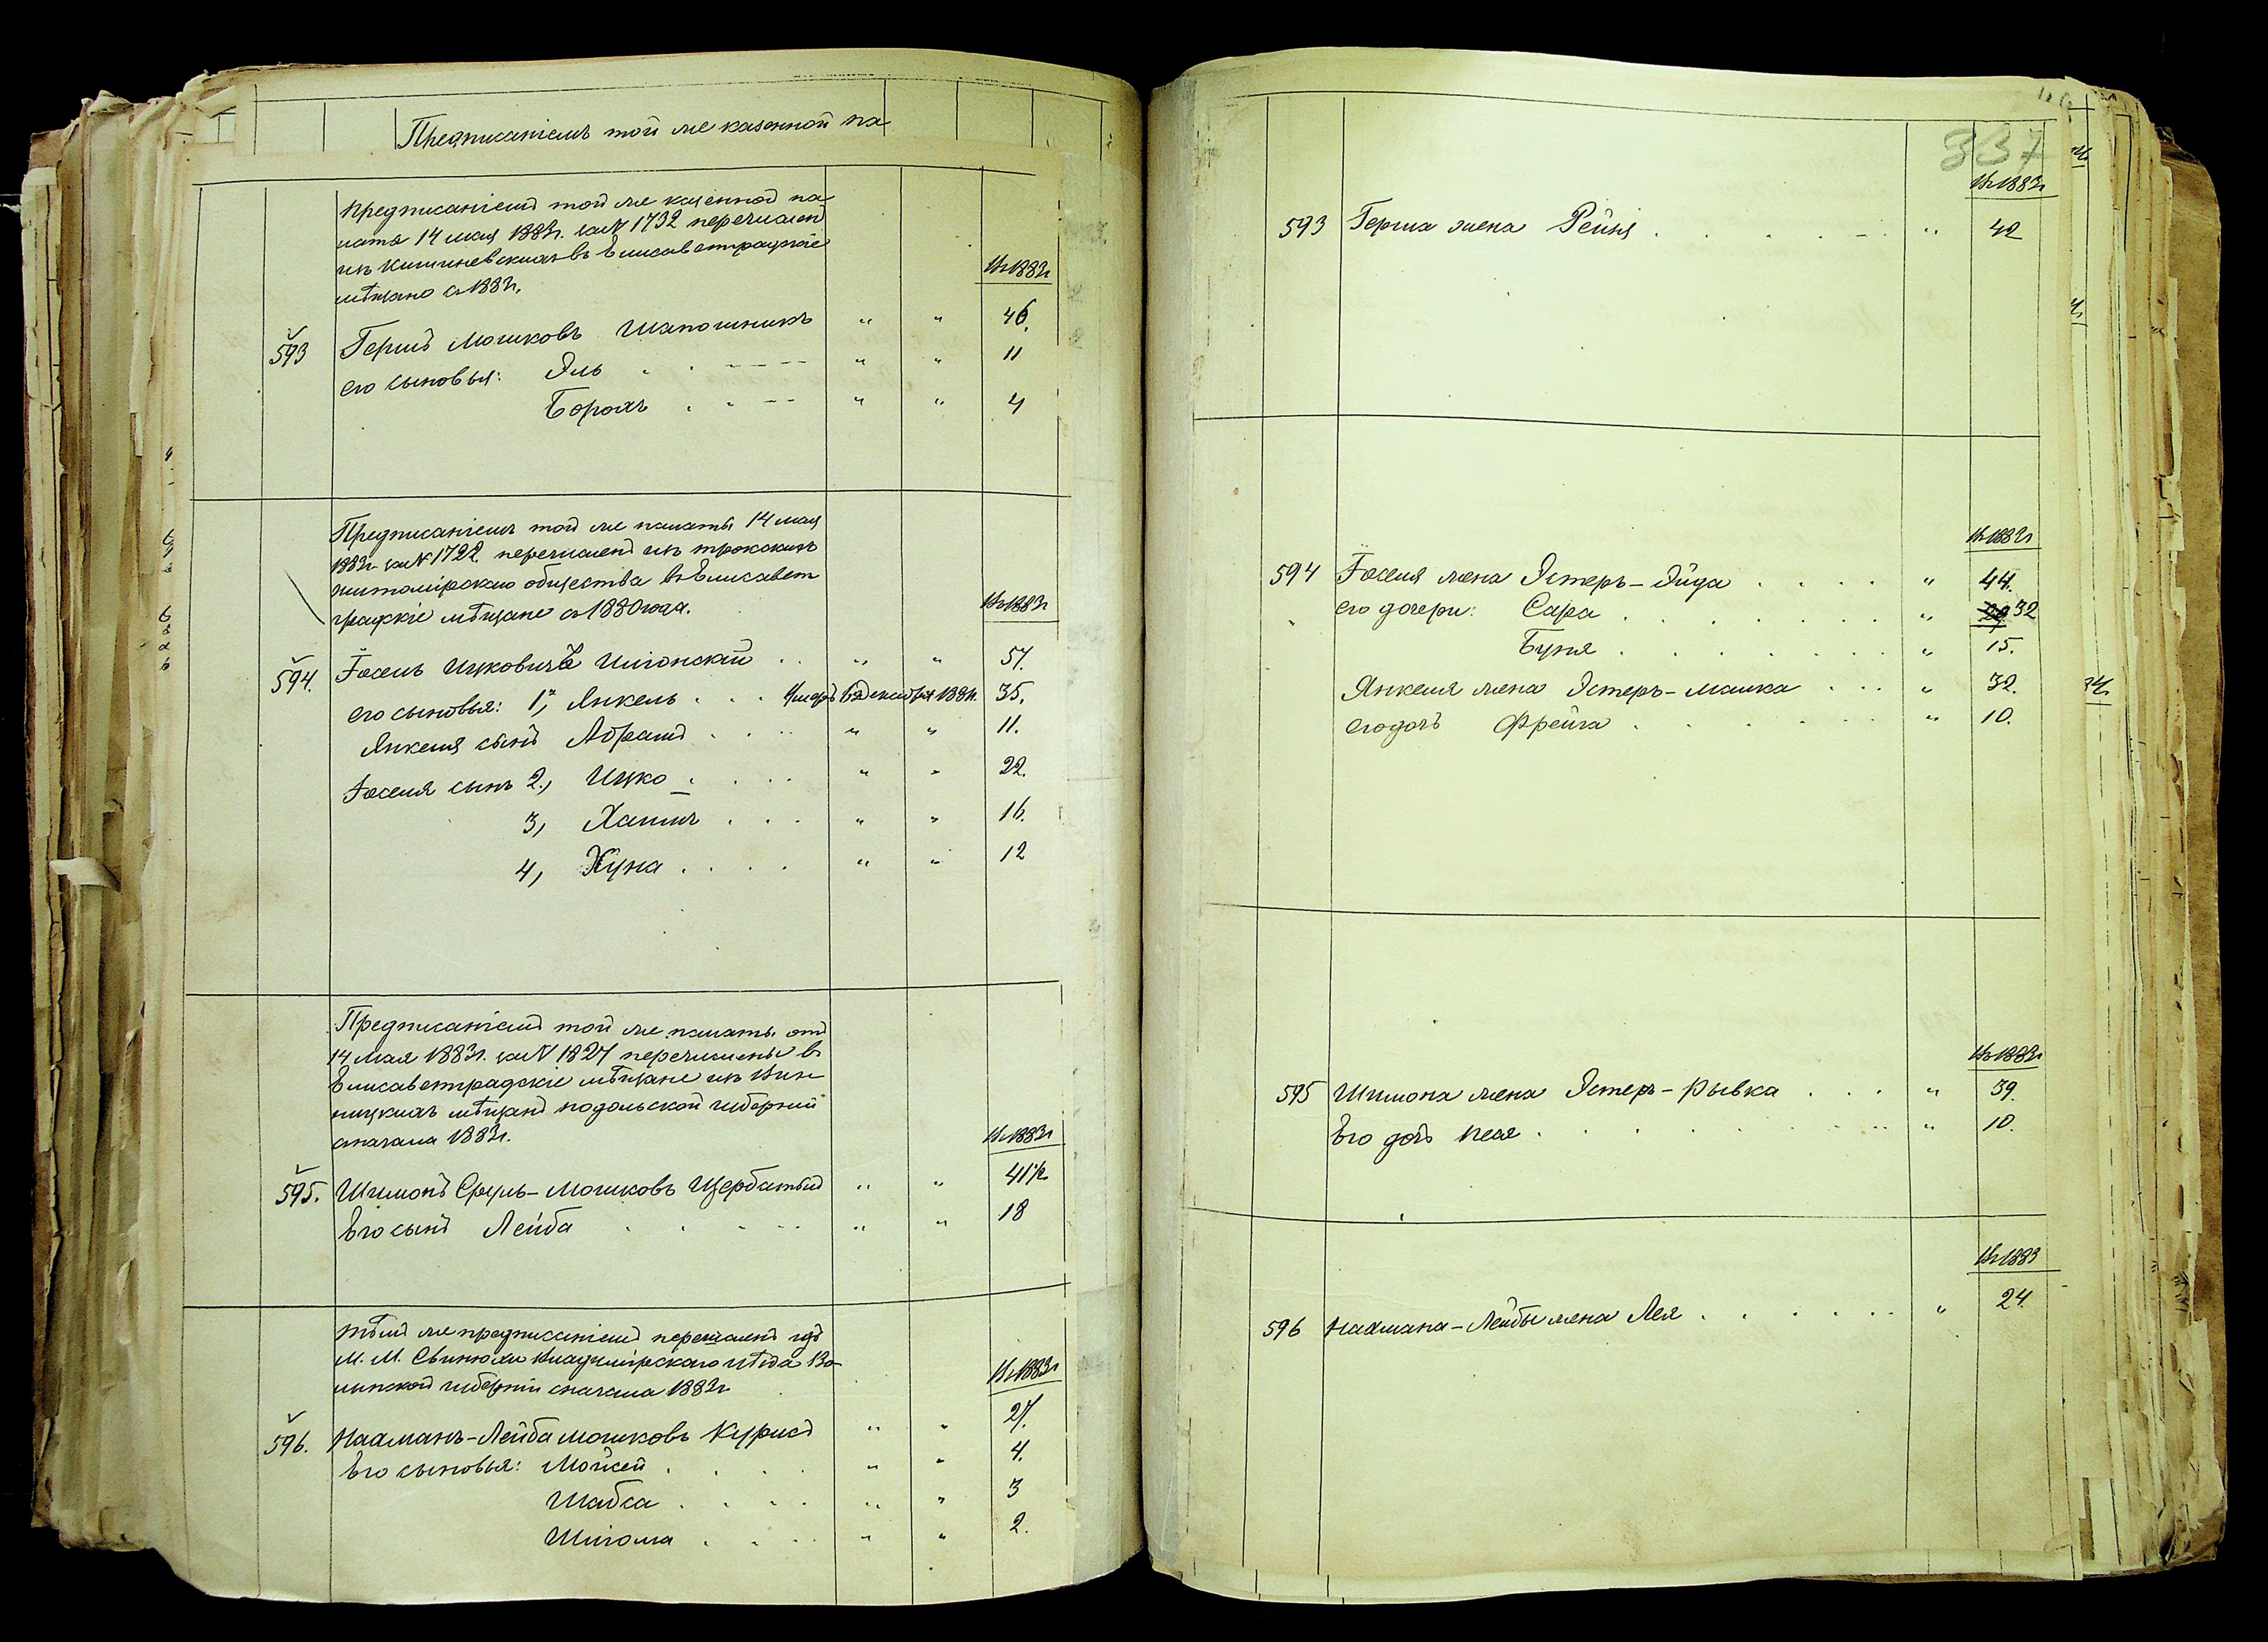 Предписанiемъ той же казенной па
Предписанiемъ той же казенной па
латы 14 мая 1883г. за № 1732 перечислен
изъ Кишиневскихъ въ Елисаветградскiе
мѣщане съ 1883г.
Въ 1883г
593 Гершъ Мошковъ Шапошникъ " " 46.
его сыновья: Эль " " 11
Борохъ " " 4
Предписанiемъ той же палаты 14 мая
1883г. за № 1722 перечисленъ изъ
житомiрскаго общества въ Елисавет
градскiе мѣщане съ 1880 года.
Въ 1883г
594. Iосель Ицковичъ " " 57.
его сыновья: 1, Янкель умеръ 1884г. 35.
Янкеля сынъ Абрамъ " " 11.
Iоселя сынъ 2, Ицко " " 22.
3, Хаимъ " " 16.
4, Хуна " " 12
Предписанiемъ той же палаты отъ
14 Мая 1883г. за № 1827 перечислены въ
Елисаветградскiе мѣщане изъ Вин
ницкихъ мѣщанъ подольской губернiи
сначала 1883г.
Въ 1883г
595. Шимонъ Сруль-Мошковъ Щербатый " " 41 1/2
Его сынъ Лейба " " 18
Тѣмъ же предписанiемъ перечисленъ изъ
М. М. Свинюхи Владимiрскаго уѣзда Во
лынской губернiи сначала 1883г
Въ 1883г
596. Нахманъ-Лейба Мошковъ " " 27.
Его сыновья: Мойсей " " 4.
Шабса " " 3
Шлiома " " 2.
337
Въ 1883г
593 Герша жена Рейзя " 42
Въ 1883г
594 Iоселя жена Эстеръ-Эйдя " 44.
его дочери: Сара " 32
Буня " 15.
Янкеля жена Эстеръ-Малка " 32.
его дочь Фрейга " 10.
Въ 1883г
595 Шимона жена Эстеръ-Рывка " 39.
Его дочь " 10.
Въ 1883
596 Нахмана-Лейбы жена Лея " 24.